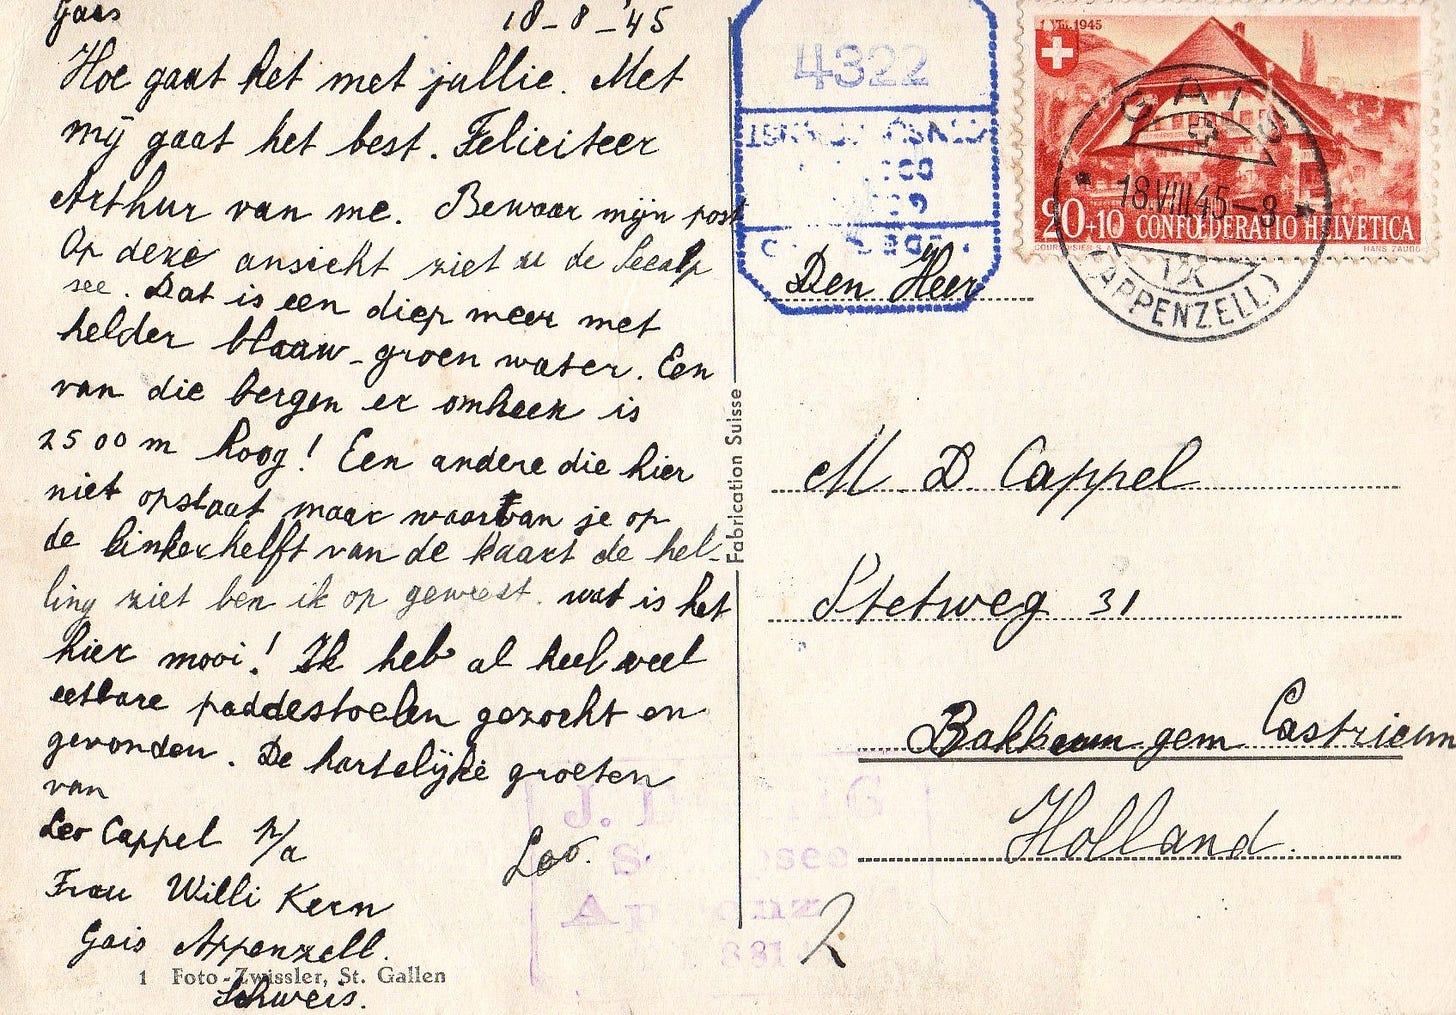 Gais 18-8-'45
Hoe gaat het met jullie. Met
mij gaat het best. Feliciteer
Arthur van me. Bewaar mijn post
Op deze ansicht ziet u de Seealp
see. Dat is een diep meer met
helder blaauw-groen water. Een
van die bergen er omheen is
2500 m hoog! Een andere die hier
niet opstaat maar waarvan je op
de linkerhelft van de kaart de hel-
ling ziet ben ik op geweest. wat is het
hier mooi! Ik heb al heel veel
eetbare paddestoelen gezocht en
gevonden. De hartelijke groeten
van
Leo Cappel p/a
Leo.
Frau Willi Kern
Gais Appenzell.
1 Foto-Zwissler, St. Gallen
Schweis.
Fabrication Suisse
4322
1 VIII 1945
20+10 CONFOEDERATIO HELVETICA
COURVOISIER S.A.
GAIS
18.VIII.45-8
IX
(APPENZELL)
Den Heer
M. D. Cappel
Stetweg 31
Bakkum gem Castricum
Holland.
2